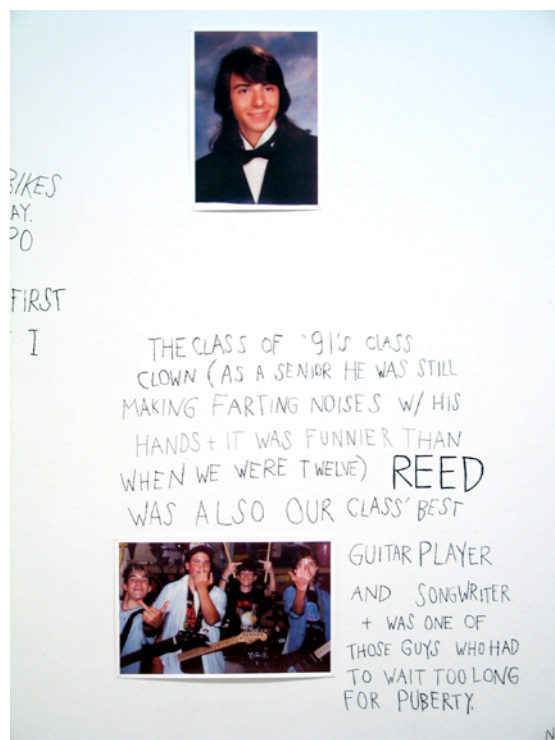 BIKES
AY.
PO
FIRST
I
THE CLASS OF '91'S CLASS
CLOWN (AS A SENIOR HE WAS STILL
MAKING FARTING NOISES W/ HIS
HANDS + IT WAS FUNNIER THAN
WHEN WE WERE TWELVE) REED
WAS ALSO OUR CLASS' BEST
GUITAR PLAYER
AND SONGWRITER
+ WAS ONE OF
THOSE GUYS WHO HAD
TO WAIT TOO LONG
FOR PUBERTY.
N